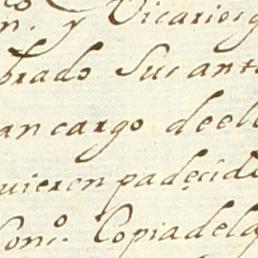 n. y Vicarios y
brado Sus ant
an cargo deel
uieren padecid
Con.º Copia dela